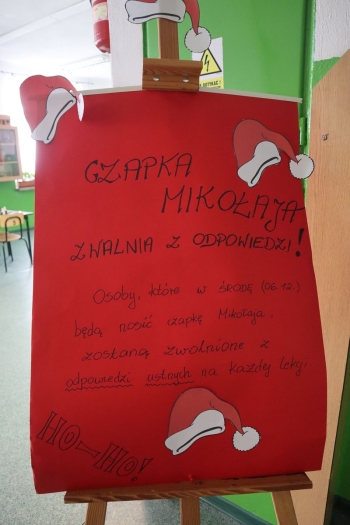 CZAPKA
MIKOŁAJA
ZWALNIA Z ODPOWIEDZI!
Osoby, które w środę (06.12)
będą nosić czapkę Mikołaja,
zostaną zwolnione z
odpowiedzi ustnych na każdej lekcji.
HO-HO!